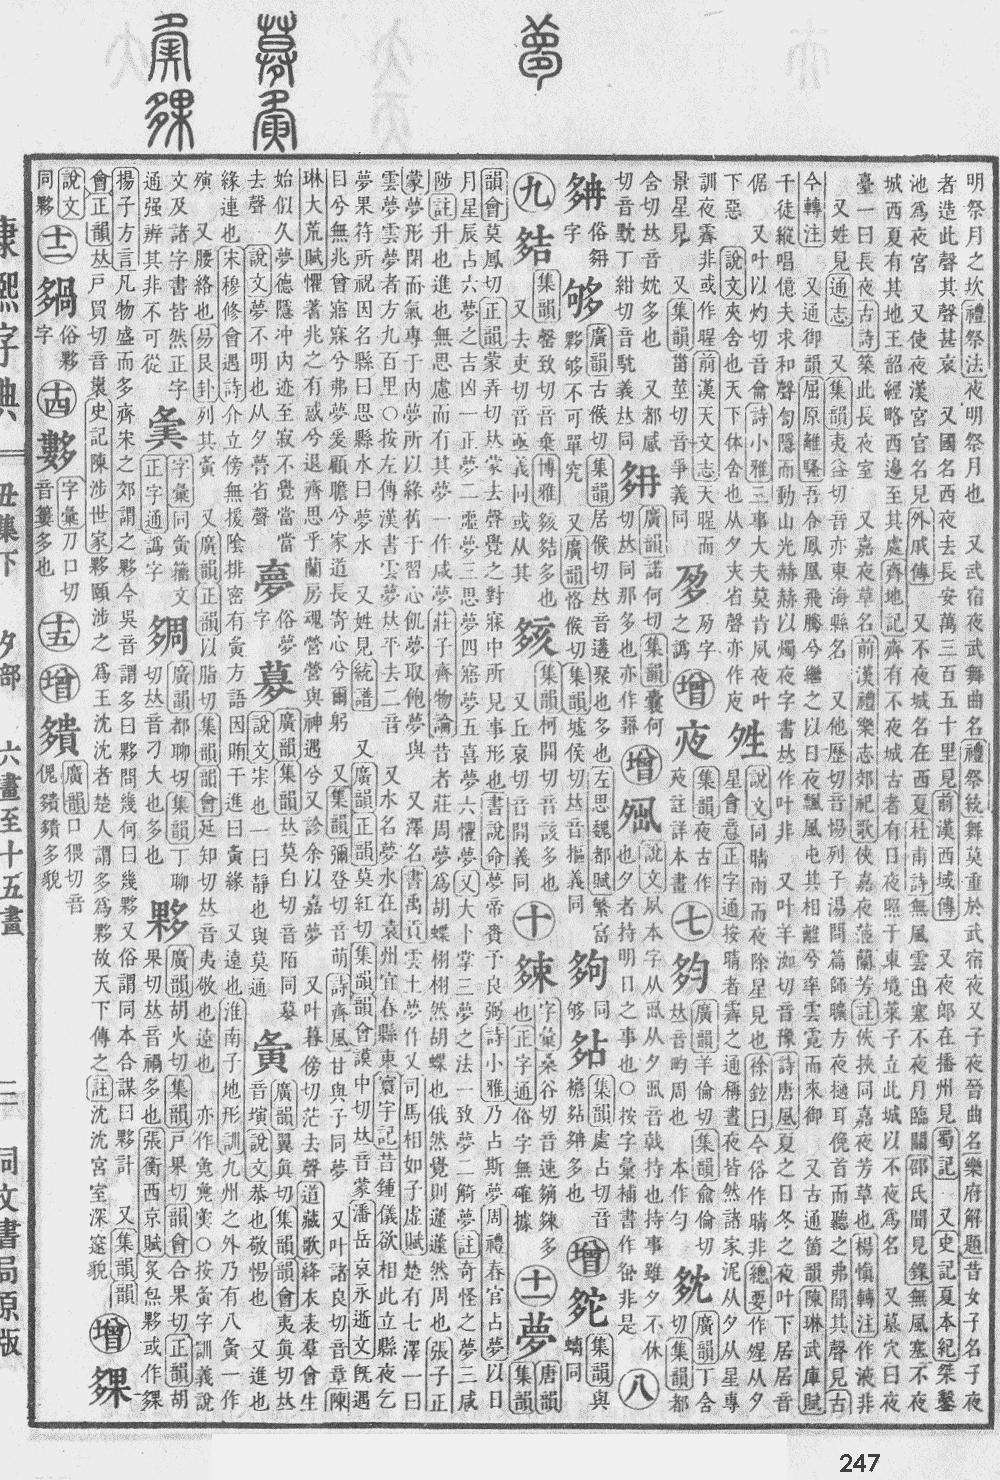 明祭月之坎禮祭法夜明祭月也 又武宿夜武舞曲名禮祭統舞莫重於武宿夜又子夜晉曲名樂府解題昔女子名子夜
者造此聲其聲甚哀 又國名西夜去長安萬三百五十里見前漢西域傳 又夜郎在播州見蜀記 又史記夏本紀桀鑿
池爲夜宮 又使夜漢宮官名見外戚傳 又不夜城名在西夏杜甫詩無風雲出塞不夜月臨關邵氏聞見錄無風塞不夜
城西夏有其地王韶經略西邊至其處齊地記齊有不夜城古者有日夜照于東境萊子立此城以不夜爲名 又墓穴曰夜
臺一曰長夜古詩築此長夜室 又嘉夜草名前漢禮樂志郊祀歌俠嘉夜茝蘭芳註俠挾同嘉夜芳草也楊愼轉注作液非
又姓見通志 又集韻夷益切音亦東海縣名 又他歷切音惕列子湯問篇師曠方夜擿耳俛首而聽之弗聞其聲見古
今轉注 又通御韻屈原離騷吾令鳳凰飛騰兮繼之以日夜飄風屯其相離兮率雲霓而來御 又古通箇韻陳琳武庫賦
千徒縱唱億夫求和聲訇隱而動山光赫赫以燭夜字書𠀤作叶非 又叶羊洳切音豫詩唐風夏之日冬之夜叶下居居音
倨 又叶以灼切音龠詩小雅三事大夫莫肯夙夜叶
下惡 說文夾舍也天下休舍也从夕夾省聲亦作
夝 說文同晴雨而夜除星見也徐鉉曰今俗作晴非總要作暒从夕
星會意正字通按晴者霽之通稱晝夜皆然諸家泥从夕从星專
訓夜霽非或作暒前漢天文志天暒而
景星見 又集韻甾莖切音爭義同
字之譌 增 集韻夜古作 註詳本畫
七 廣韻羊倫切集韻兪倫切𠀤音畇周也 本作勻
廣韻丁含切集韻都
含切𠀤音妉多也 又都感
切音黕丁紺切音馾義𠀤同
廣韻諾何切集韻囊何
切𠀤同那多也亦作
增 說文夙本字从丮从夕丮音戟持也持事雖夕不休
也夕者持明日之事也○按字彙補書作 非是 八
够 廣韻古候切集韻居候切𠀤音遘聚也多也左思魏都賦繁富
夥够不可單究 又廣韻恪侯切集韻墟侯切𠀤音摳義同
夠 同够 集韻處占切音襜 多也 增 集韻與 同
九 集韻磬致切音棄博雅 多也
又去吏切音亟義同或从其
集韻柯開切音該多也
又丘哀切音開義同
十 字彙桑谷切音速 多
也正字通俗字無確據
十一 夢 唐韻集韻
韻會莫鳳切正韻蒙弄切𠀤蒙去聲覺之對寐中所見事形也書說命夢帝賚予良弼詩小雅乃占斯夢周禮春官占夢以日
月星辰占六夢之吉凶一正夢二噩夢三思夢四寤夢五喜夢六懼夢又大卜掌三夢之法一致夢二觭夢註奇怪之夢三咸
陟註升也進也無思慮而有其夢一作咸夢莊子齊物論昔者莊周夢爲胡蝶栩栩然胡蝶也俄然覺則蘧蘧然周也張子正
蒙夢形閉而氣專于內夢所以緣舊于習心飢夢取飽夢與 又澤名書禹貢雲土夢作又司馬相如子虛賦楚有七澤一曰
雲夢雲夢者方九百里○按左傳漢書雲夢𠀤平去二音 又水名夢水在袁州宜春縣東寰宇記昔鍾儀欲相此立縣夜乞
夢果符所祝因名縣曰思縣水曰夢水 又姓見統譜 又廣韻正韻莫紅切集韻韻會謨中切𠀤音蒙潘岳哀永逝文旣遇
目兮無兆曾寤寐兮弗夢爰顧瞻兮家道長寄心兮爾躬 又集韻彌登切音萌詩齊風甘與子同夢 又叶諸良切音章陳
琳大荒賦懼著兆之有惑兮退齊思乎蘭房魂營營與神遇兮又診余以嘉夢 又叶暮傍切茫去聲道藏歌絳衣表羣會生
始似久夢德隱沖內迹至寂不覺當當
去聲 說文夢不明也从夕瞢省聲
俗夢字 說文宋也一曰靜也與莫通
廣韻集韻𠀤莫白切音陌同
夤 廣韻翼眞切集韻韻會夷眞切𠀤
音演說文恭也敬惕也 又進也
緣連也宋穆修會遇詩介立傍無援陰排密有夤方語因賄干進曰夤緣 又遠也淮南子地形訓九州之外乃有八夤一作
殥 又腰絡也易艮卦列其夤 又廣韻正韻以脂切集韻韻會延知切𠀤音夷敬也遠也 亦作 ○按夤字訓義說
文及諸字書皆然正字
通强辨其非不可從
字彙同夤籀文
正字通譌字
廣韻都聊切集韻丁聊
切𠀤音刁大也多也
夥 廣韻胡火切集韻戸果切韻會合果切正韻胡
果切𠀤音禍多也張衡西京賦炙炰夥或作
揚子方言凡物盛而多齊宋之郊謂之夥今吳音謂多曰夥問幾何曰幾夥又俗謂同本合謀曰夥計 又集韻韻
會正韻𠀤戸買切音 史記陳涉世家夥頤涉之爲王沈沈者楚人謂多爲夥故天下傳之註沈沈宮室深邃貌 增
說文
同夥
十二 俗夥字
十四 字彙刀口切
音 多也
十五 增 廣韻口猥切音
傀 多貌
康熙字典 丑集下 夕部 六畫至十五畫 二 同文書局原版
247